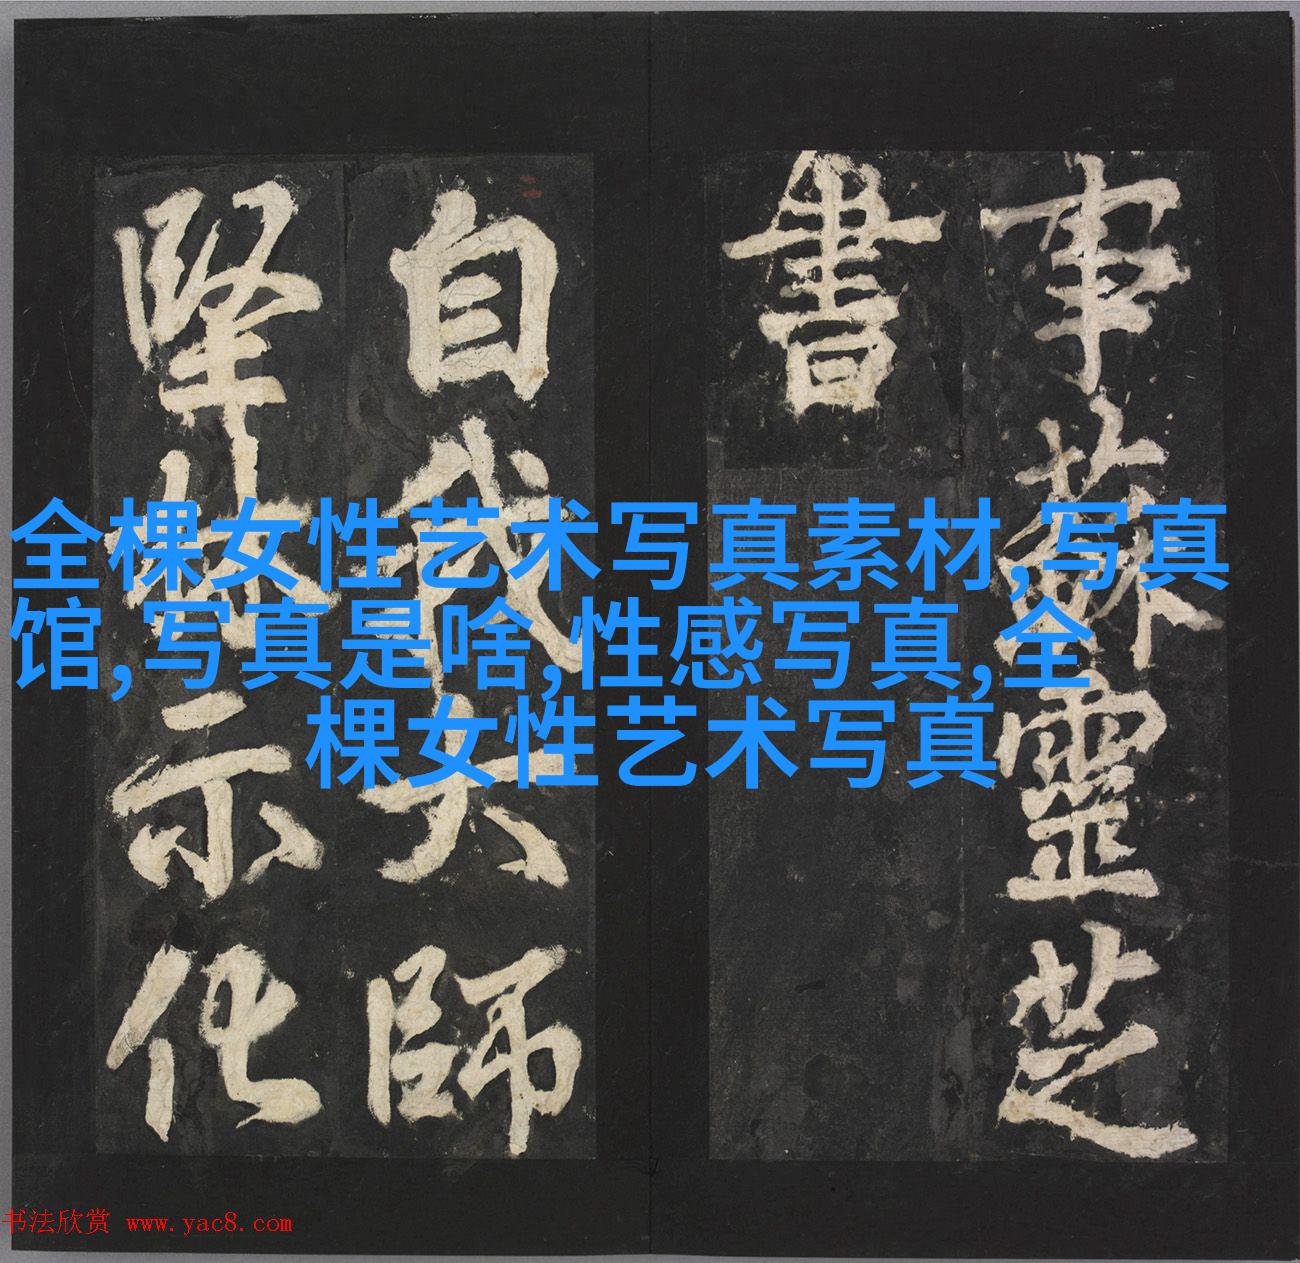 事蘇靈芝
書
自我大師
示化
全棵女性艺术写真素材,写真
馆,写真是啥,性感写真,全
棵女性艺术写真
书法欣赏 www.yac8.com